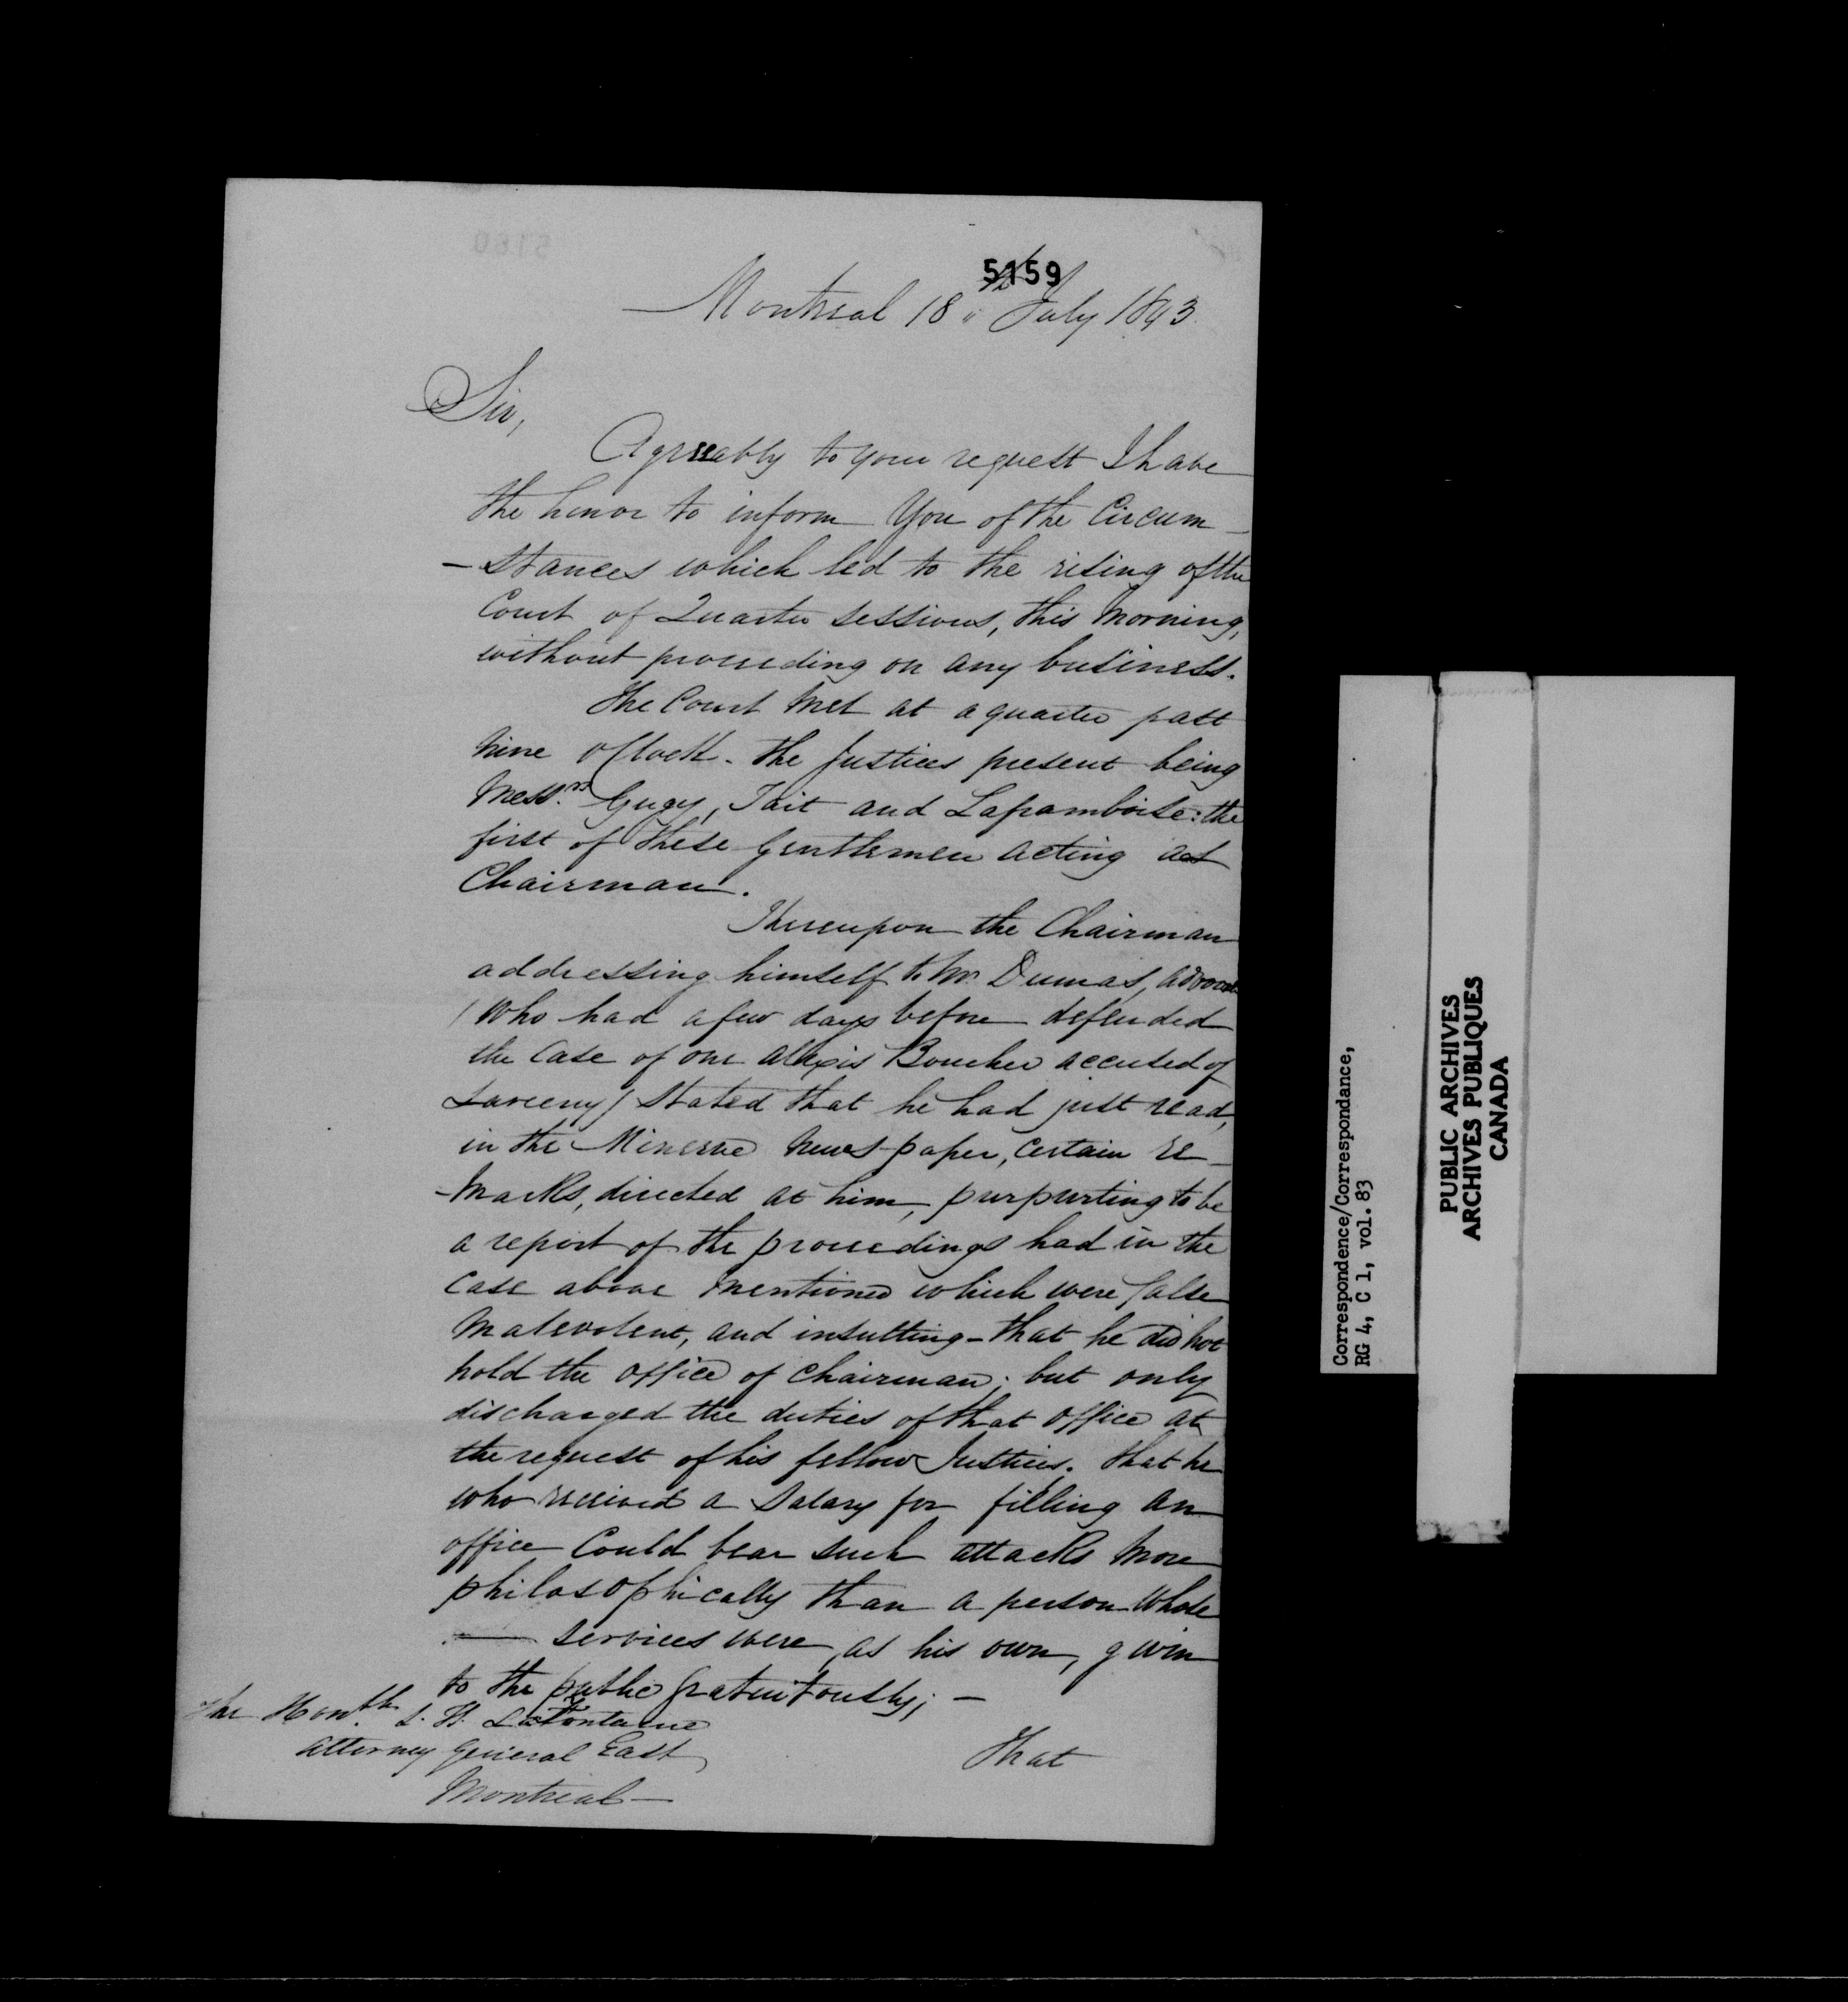 5159
Montreal 18th July 1843.
Sir,
Agreeably to your request I have
the honor to inform You of the Circum-
-stances which led to the rising of the
Court of Quarter Sessions, this Morning,
without proceeding on any business.
The Court Met at a quarter past
Nine oClock. the Justices present being
Messrs Gugy, Tait and Laframboise: the
first of these Gentlemen acting as
Chairman.
Thereupon the Chairman
addressing himself to Mr. Dumas, advocate
(Who had a few days before defended
the Case of one Alexis Boucher accused of
Larceny) Stated that he had just read,
in the Minerve News-paper, Certain re-
-Marks, directed at him, purpurting to be
a report of the proceedings had in the
Case above Mentioned which were false
Malevolent, and insulting - that he did not
hold the office of Chairman; but only
discharged the duties of that office at
the request of his fellow Justices. that he
who received a Salary for filling an
office Could bear such attacks More
philosophically than a person Whose
— services were, as his own, given
to the public gratuitously; —
The Honble L. H. LaFontaine
Attorney General East
Montreal —
That
Correspondence/Correspondance,
RG 4, C 1, vol. 83
PUBLIC ARCHIVES
ARCHIVES PUBLIQUES
CANADA